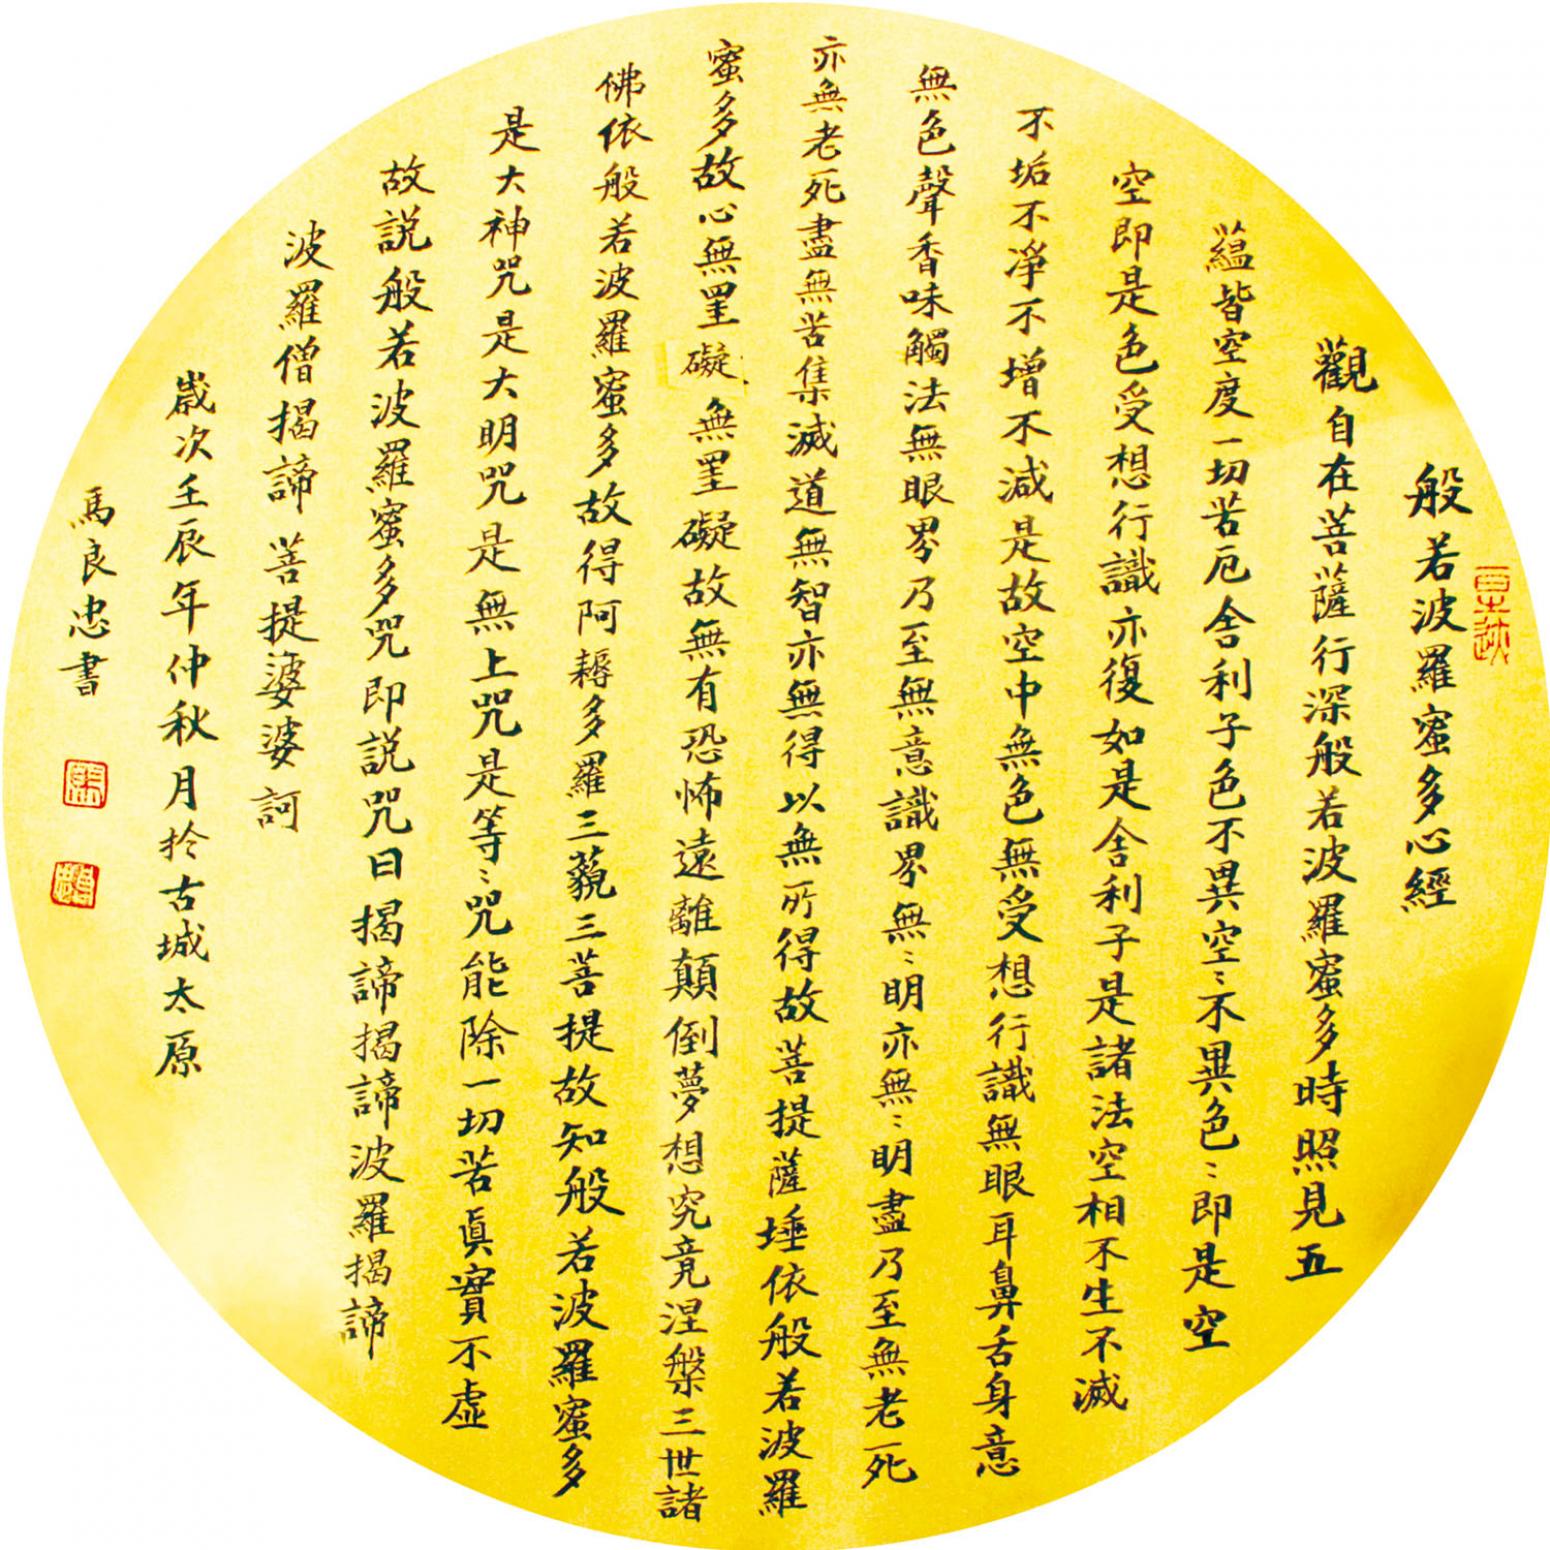 般若波羅蜜多心經
觀自在菩薩行深般若波羅蜜多時照見五
蘊皆空度一切苦厄舍利子色不異空〻不異色〻即是空
空即是色受想行識亦復如是舍利子是諸法空相不生不滅
不垢不淨不增不減是故空中無色無受想行識無眼耳鼻舌身意
無色聲香味觸法無眼界乃至無意識界無〻明亦無〻明盡乃至無老死
亦無老死盡無苦集滅道無智亦無得以無所得故菩提薩埵依般若波羅
蜜多故心無罣礙無罣礙故無有恐怖遠離顛倒夢想究竟涅槃三世諸
佛依般若波羅蜜多故得阿耨多羅三藐三菩提故知般若波羅蜜多
是大神咒是大明咒是無上咒是等〻咒能除一切苦真實不虛
故説般若波羅蜜多咒即説咒曰揭諦揭諦波羅揭諦
波羅僧揭諦菩提婆婆訶
歲次壬辰年仲秋月於古城太原
馬良忠書